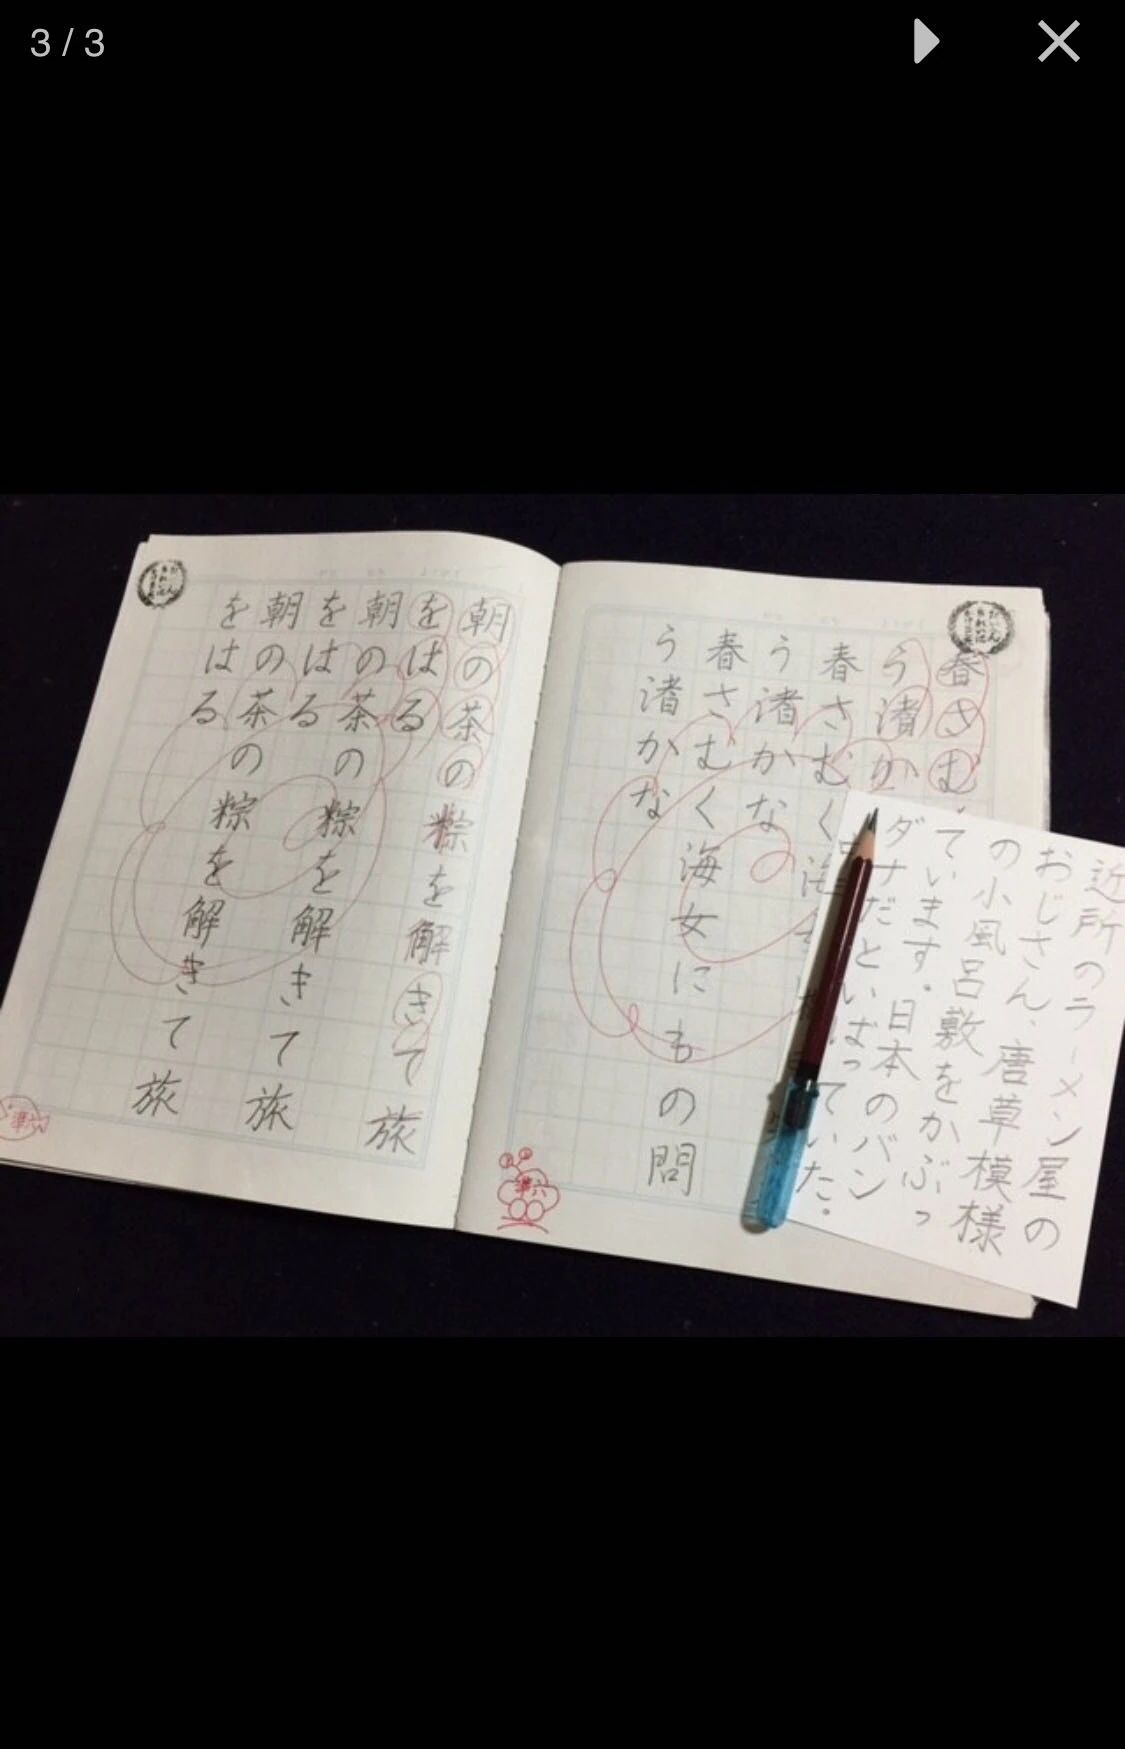 3 / 3
春さむ
う渚か
春さむく
う渚かな
春さむく海女にもの問
う渚かな
準六
近所のラーメン屋の
おじさん、唐草模様
の小風呂敷をかぶっ
ています。日本のバン
ダナだといばっていた。
朝の茶の粽を解きて旅
をはる
朝の茶の粽を解きて旅
をはる
朝の茶の粽を解きて旅
をはる
準六